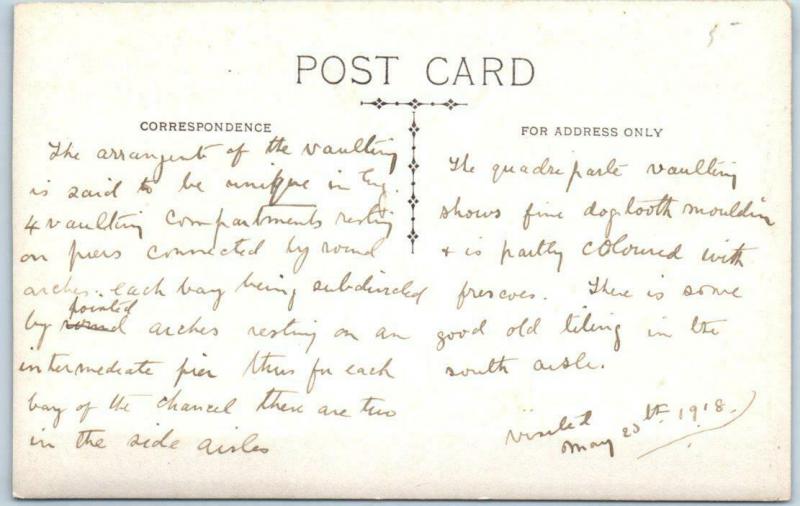 5
POST CARD
CORRESPONDENCE
The arrangent of the vaulting
is said to be unique in Eng.
4 vaulting compartments resting
on piers connected by round
arches. each bay being subdivided
pointed
by round arches resting on an
intermediate pier thus for each
bay of the chancel there are two
in the side aisles
FOR ADDRESS ONLY
The quadripartite vaulting
shows fine dogtooth mouldin
+ is partly coloured with
frescoes. There is some
good old tiling in the
south aisle.
Visited
May 20th 1918.